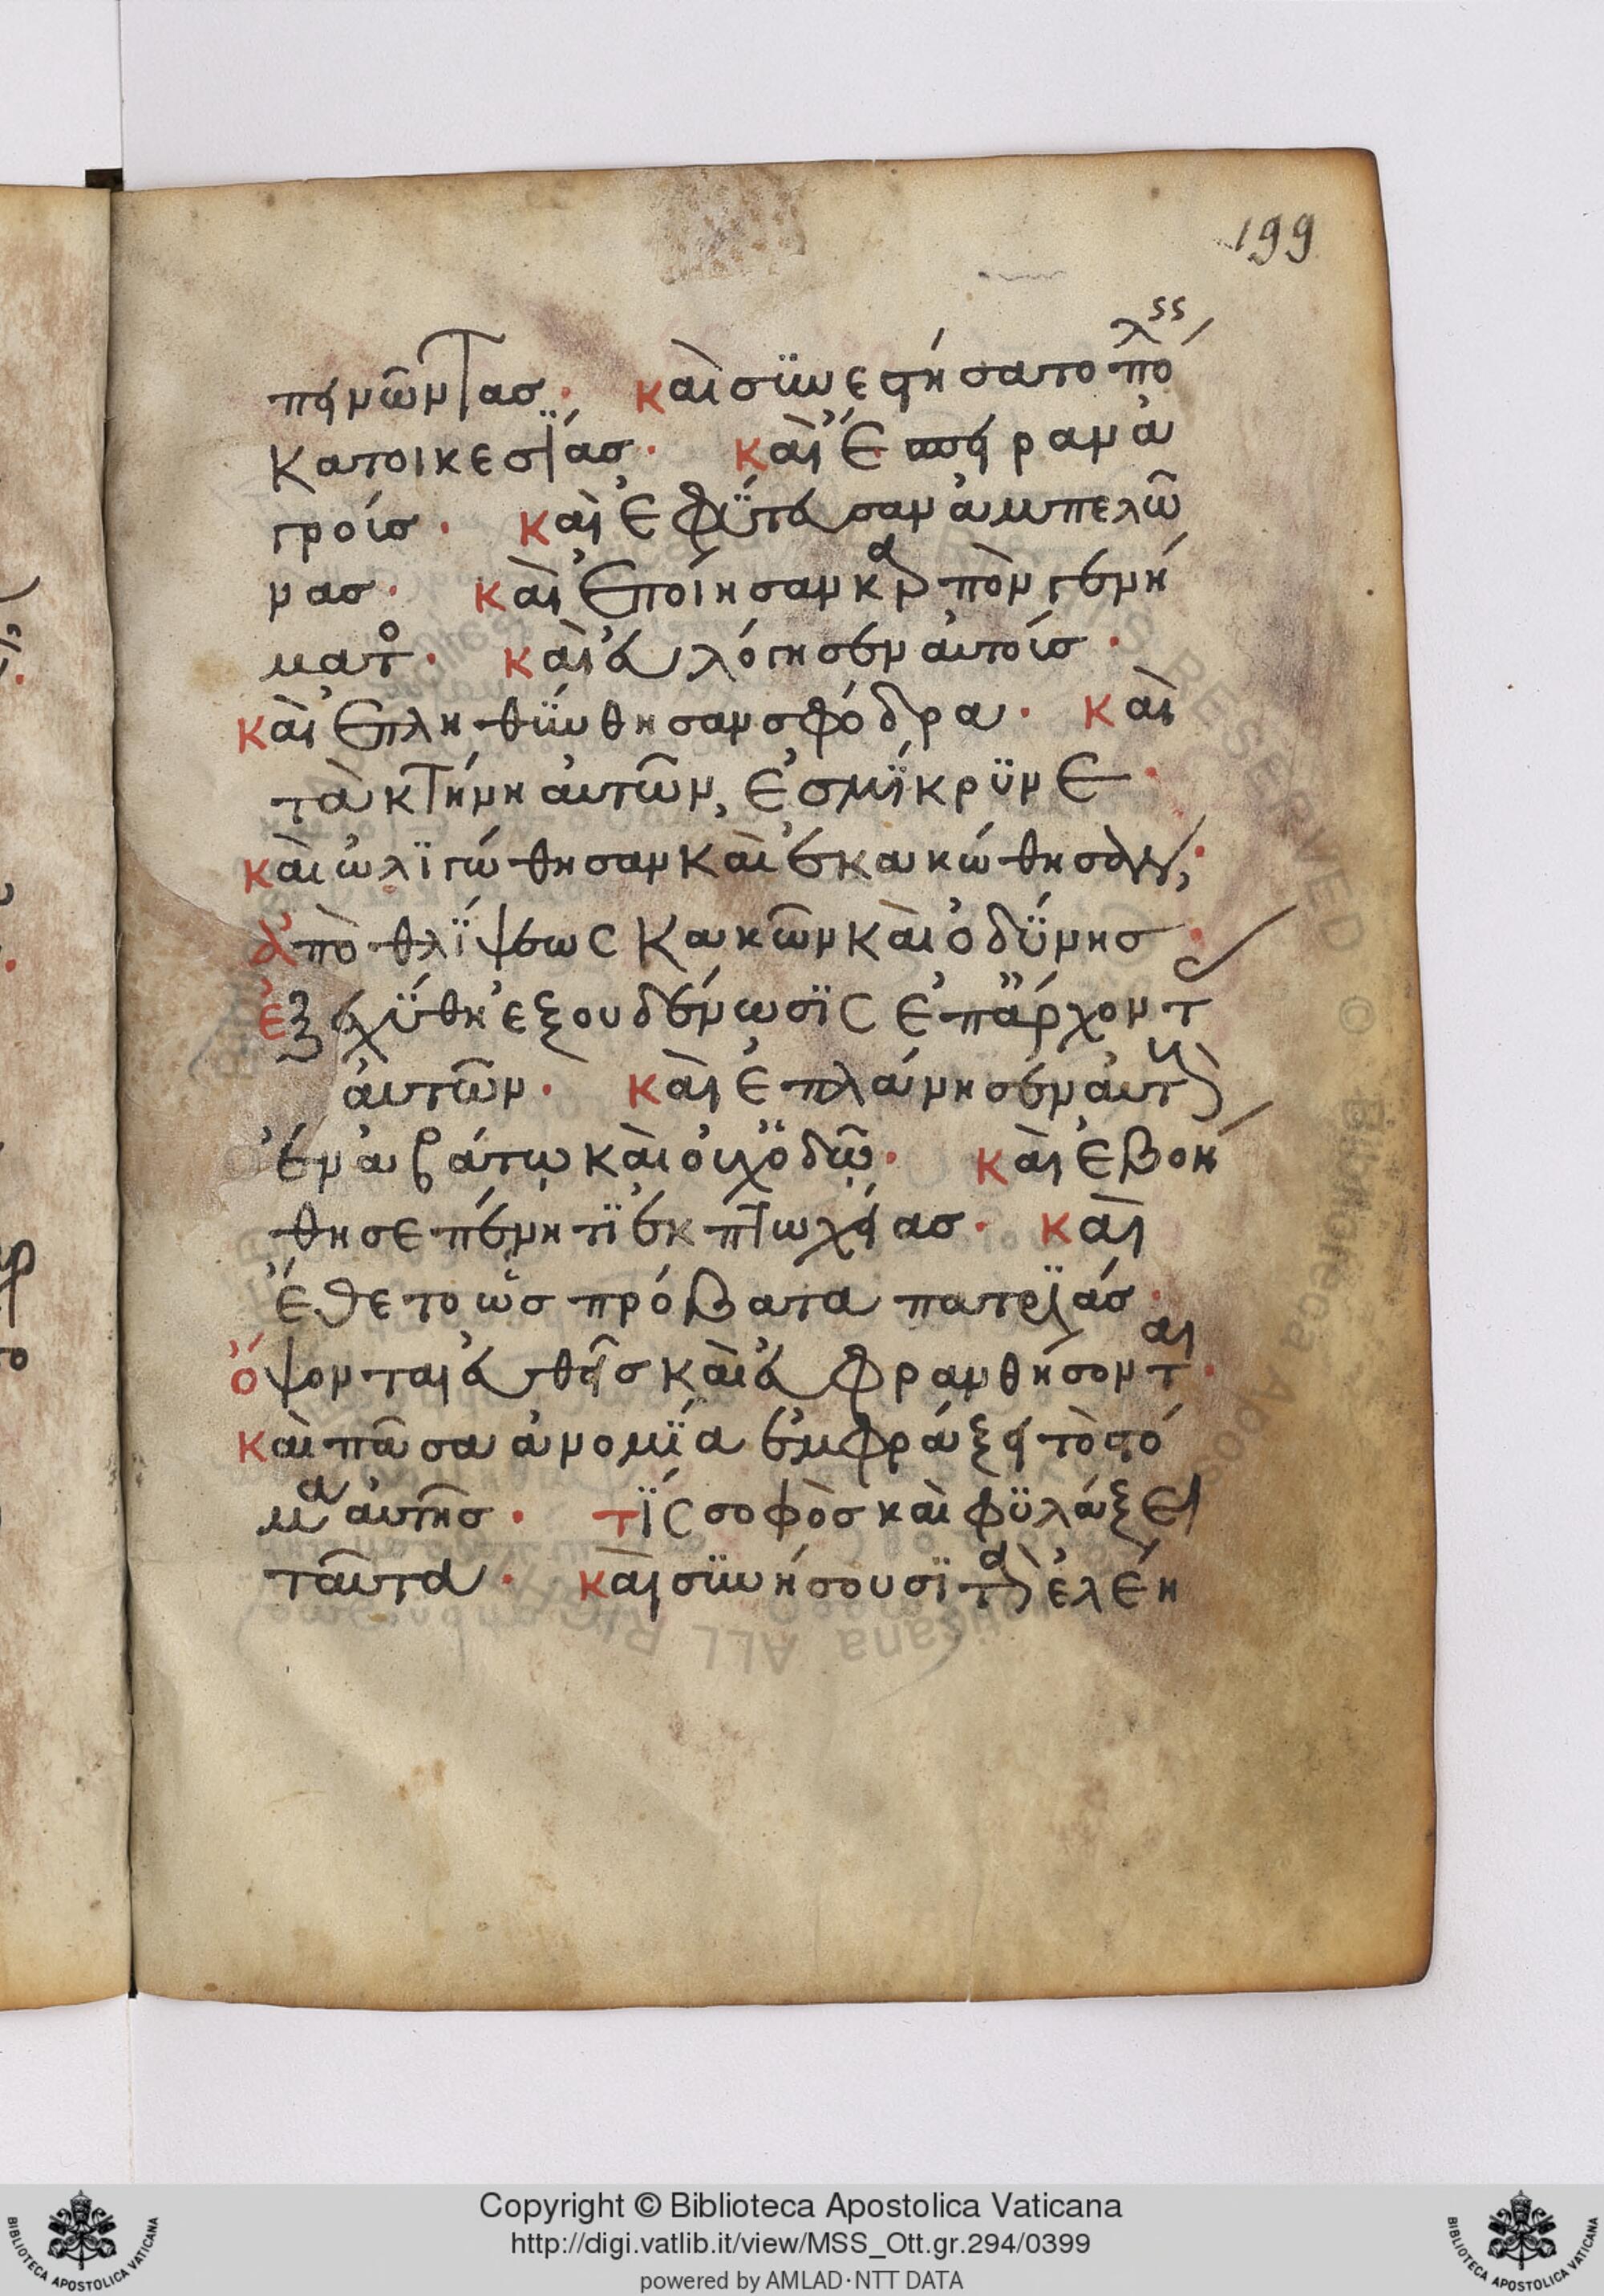 199
πεινῶντας· καὶ συνεστήσατο πόλεις
κατοικεσίας· καὶ ἔσπειραν ἀ
γρούς· καὶ ἐφύτευσαν ἀμπελῶ
νας· καὶ ἐποίησαν καρπὸν γενή
ματος· καὶ εὐλόγησεν αὐτοὺς·
καὶ ἐπληθύνθησαν σφόδρα· καὶ
τὰ κτήνη αὐτῶν, ἐσμίκρυνε·
καὶ ὠλιγώθησαν καὶ ἐκακώθησαν,
ἀπὸ θλίψεως κακῶν καὶ ὀδύνης·
ἐξεχύθη ἐξουδένωσις ἐπ ἄρχοντ
αὐτῶν· καὶ ἐπλάνησεν αὐτοὺς
ἐν ἀβάτῳ καὶ οὐχ ὁδῷ· καὶ ἐβοή
θησε πένητι ἐκ πτωχείας· καὶ
ἔθετο ὡς πρόβατα πατριάς·
ὄψονται εὐθεῖς καὶ εὐφρανθήσονται·
καὶ πᾶσα ἀνομία ἐμφράξει τὸ στό
μα αὐτῆς· τίς σοφὸς καὶ φυλάξει
ταῦτα· καὶ συνήσουσι τὰ ἐλέη
Copyright © Biblioteca Apostolica Vaticana
http://digi.vatlib.it/view/MSS_Ott.gr.294/0399
powered by AMLAD·NTT DATA
BIBLIOTECA APOSTOLICA VATICANA
BIBLIOTECA APOSTOLICA VATICANA